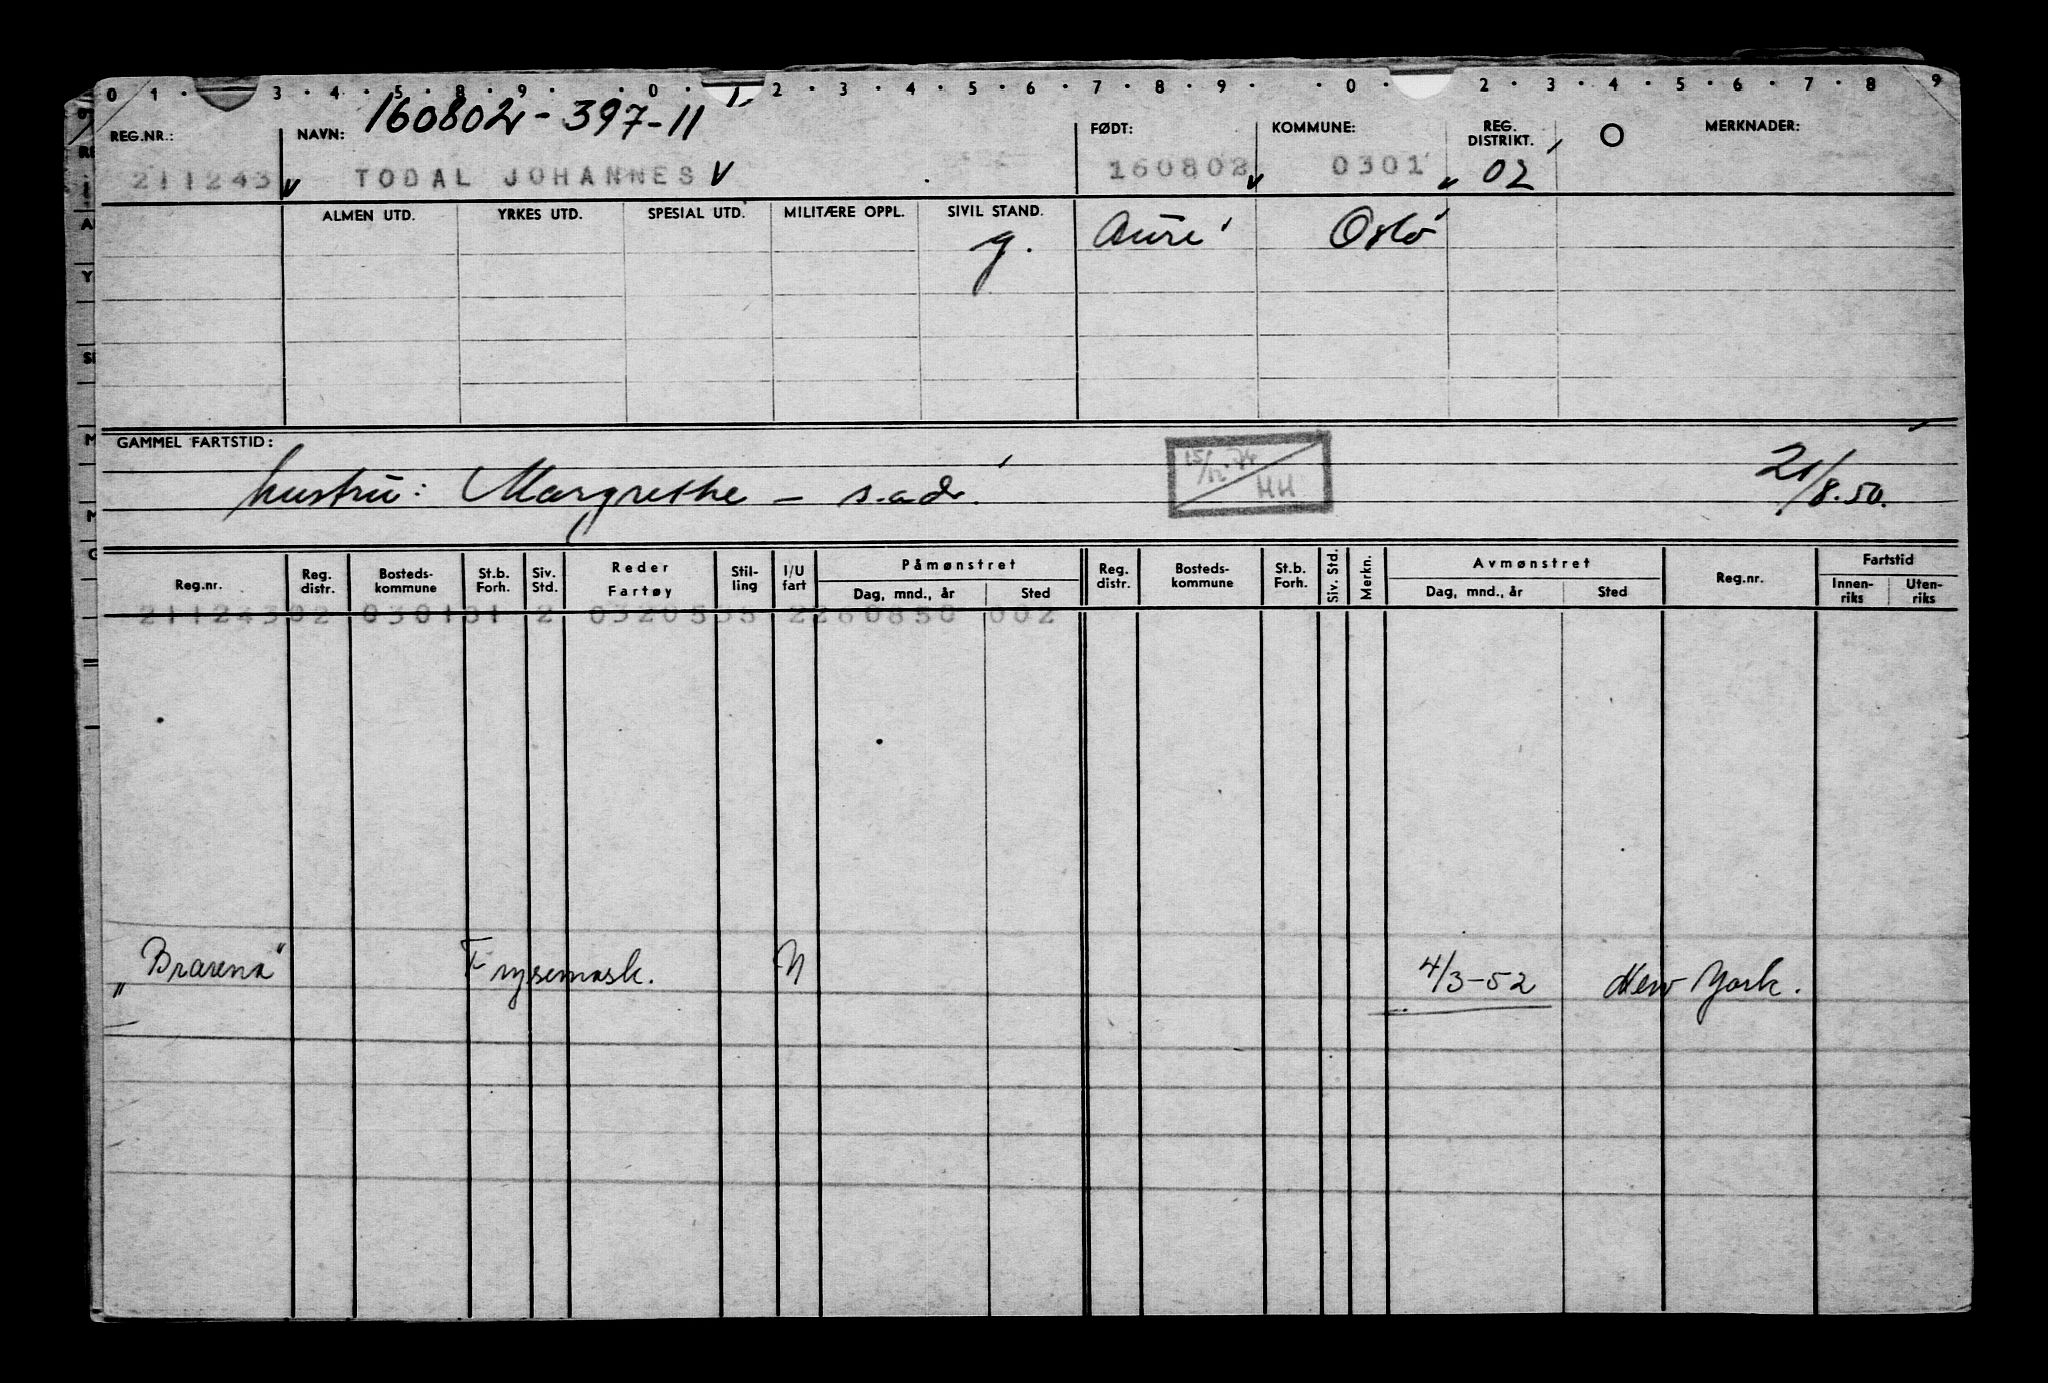 0 1 3 4 5 8 9 0 1 2 3 4 5 6 7 8 9 0 2 3 4 5 6 7 8 9
160802 - 397-11
REG.NR.: NAVN: FØDT: KOMMUNE: REG. DISTRIKT. O MERKNADER:
211243 TODAL JOHANNES 160802 0301 02
ALMEN UTD. YRKES UTD. SPESIAL UTD. MILITÆRE OPPL. SIVIL STAND.
g. Aure Oslo
GAMMEL FARTSTID:
hustru: Margrethe - s.adr. 15/12.74 HH 21/8.50.
Reg.nr. Reg. distr. Bosteds-kommune St.b. Forh. Siv. Std. Reder Fartøy Stil-ling I/U fart Påmønstret Dag, mnd., år Sted Reg. distr. Bosteds-kommune St.b. Forh. Siv. Std. Merkn. Avmønstret Dag, mnd., år Sted Reg.nr. Fartstid Innen-riks Uten-riks
21124302 030131 2 0320535 2260850 002
„Brarena" Frysemask. 4/3-52 New York.